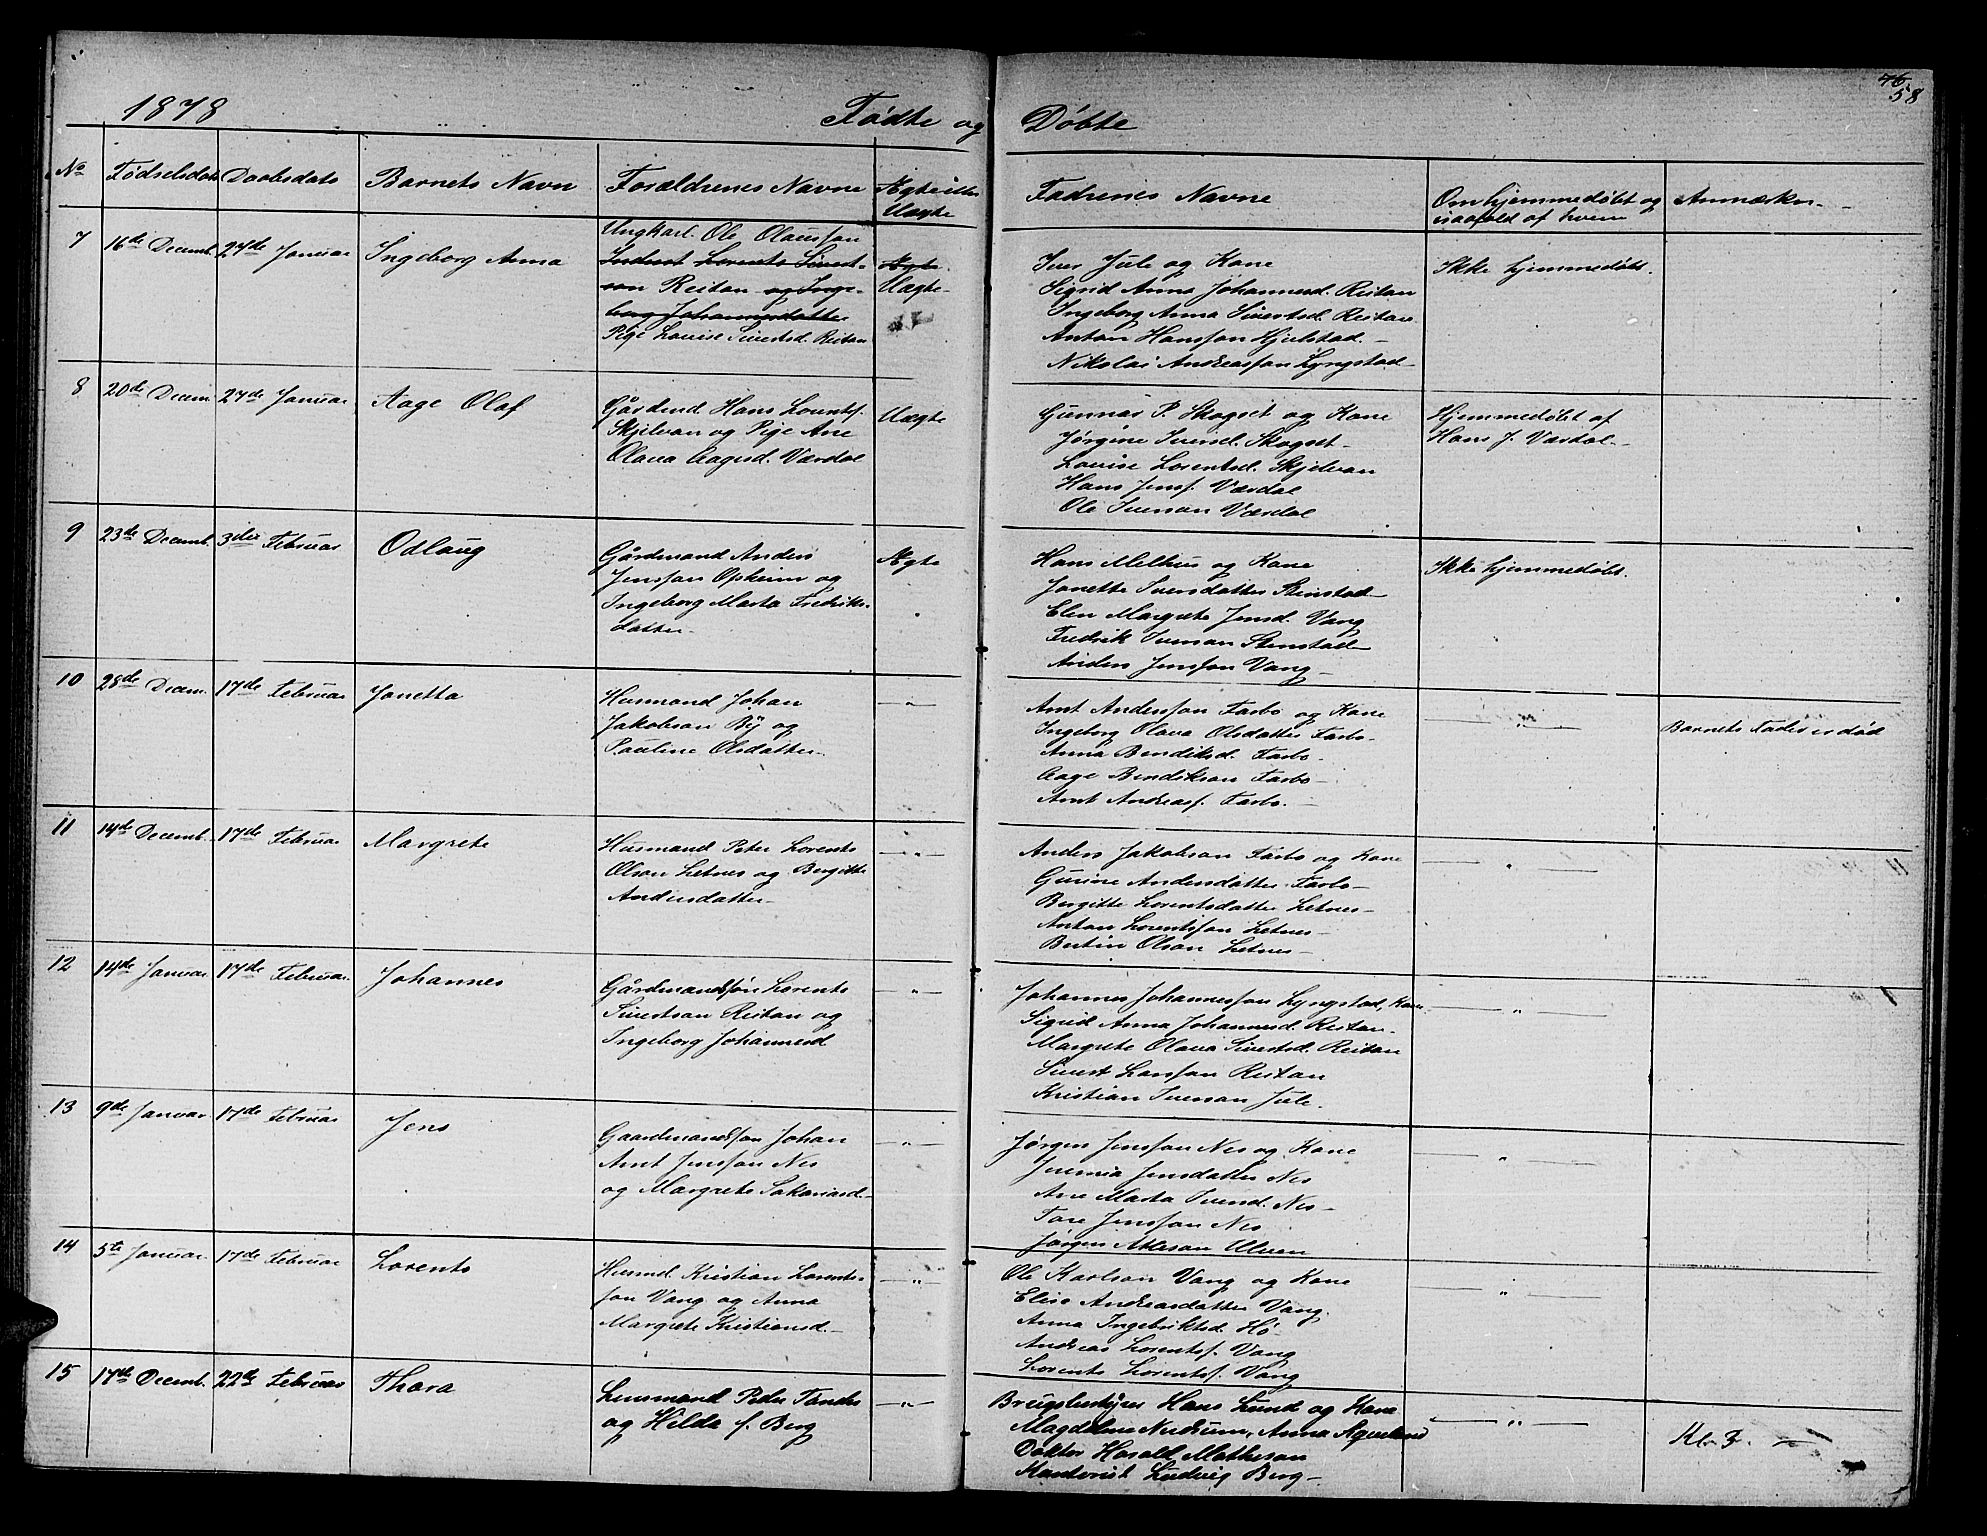 76
58
1878 Fødte og Døbte
No Fødselsdato Daabsdato Barnets Navn Forældrenes Navne Ægte eller Uægte Faddrenes Navne Om hjemmedøbt og isaafald af hvem Anmærkn.
7 16de Decemb. 27de Januar Ingeborg Anna
Ungkarl Ole Olaussøn
Inderst Lorents Sivert-
son Reitan og Inge-
borg Johannesdatter
Pige Louise Sivertsd. Reitan
Ægte
Uægte
Iver Jule og Kone
Sigrid Anna Johannesd. Reitan
Ingeborg Anna Sivertsd. Reitan
Anton Hanssøn Hjelstad
Nikolai Andreassøn Lyngstad
Ikke hjemmedøbt.
8 20de Decem. 27de Januar Aage Olaf
Gårdmd Hans Lorentsf.
Skjelvan og Pige Ane
Olava Aagesd. Værdal
Uægte
Gunnar P. Skogset og Kone
Jørgine Iversd. Skogset
Louise Lorentsd. Skjelvan
Hans Jensf. Værdal
Ole Iverson Værdal
Hjemmedøbt af
Hans J. Værdal
9 23de Decemb. 3die Februar Odlaug
Gårdmand Anders
Jenssøn Opheim og
Ingeborg Marta Fredriks-
datter
Ægte
Hans Melhus og Kone
Janette Iversdatter Steinstad
Elen Margrete Jensd. Vang
Fredrik Iverson Stenstad
Anders Jenssøn Vang
Ikke hjemmedøbt.
10 28de Decem. 17de Februar Janetta
Husmand Johan
Jakobson By og
Pauline Olsdatter
— " —
Arnt Anderssøn Farbo og Kone
Ingeborg Olava Olsdatter Farbo
Anna Bendiksd. Farbo
Aage Bendikson Farbo
Arnt Andreasf. Farbo
— " —
Barnets Fader er død
11 14de Decemb. 17de Februar Margrete
Husmand Peter Lorents
Olson Letnes og Bergitte
Andersdatter
— " —
Anders Jakobson Farbo og Kone
Gurine Andersdatter Farbo
Bergitte Lorentsdatter Letnes
Anton Lorentssøn Letnes
Bertin Olson Letnes
— " —
12 14de Januar 17de Februar Johannes
Gårdmandssøn Lorents
Sivertson Reitan og
Ingeborg Johannesd.
— " —
Johannes Johannessøn Lyngstad, Kone
Sigrid Anna Johannesd. Reitan
Margrete Olava Sivertsd. Reitan
Sivert Larssøn Reitan
Kristian Iverson Jule
— " —
13 9de Januar 17de Februar Jens
Gaardmandssøn Johan
Arnt Jenssøn Nes
og Margrete Sakariasd.
— " —
Jørgen Jenssøn Nes og Kone
Jeremia Jensdatter Nes
Ane Marta Iversd. Nes
Tore Jenssøn Nes
Jørgen Atleson Ulven
— " —
14 5te Januar 17de Februar Lorents
Husmd. Kristian Lorents-
søn Vang og Anna
Margrete Kristiansd.
— " —
Ole Karlson Vang og Kone
Elise Andreasdatter Vang
Anna Ingebriktsd. Hø
Andreas Lorentsf. Vang
Lorents Lorentsf. Vang
— " —
15 17de Decemb. 22de Februar Thora
Lensmand Peter Tandes
og Hilda f. Berg
— " —
Brugsbestyrer Hans Lund og Kone
Magdalene Nersum, Anna Agerlund
Doktor Harald Mathesan
Kontorist Ludvig Berg
— " —
Kl. 3.